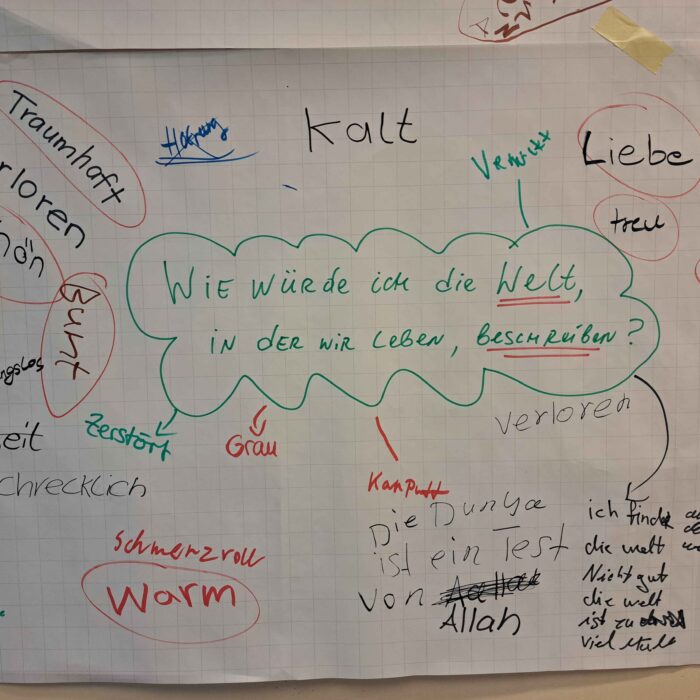 Traumhaft
rloren
hön
Bunt
ngslos
eit
chrecklich
Hoffnung
Kalt
Verwirrt
Liebe
treu
WIE WÜRDE ICH DIE WELT,
IN DER WIR LEBEN, BESCHREIBEN?
Zerstört
Grau
Kanputt
verloren
Schmerzvoll
Warm
Die Dunya
ist ein Test
von
Allah
ich finde
die welt
Nicht gut
die welt
ist zu
viel